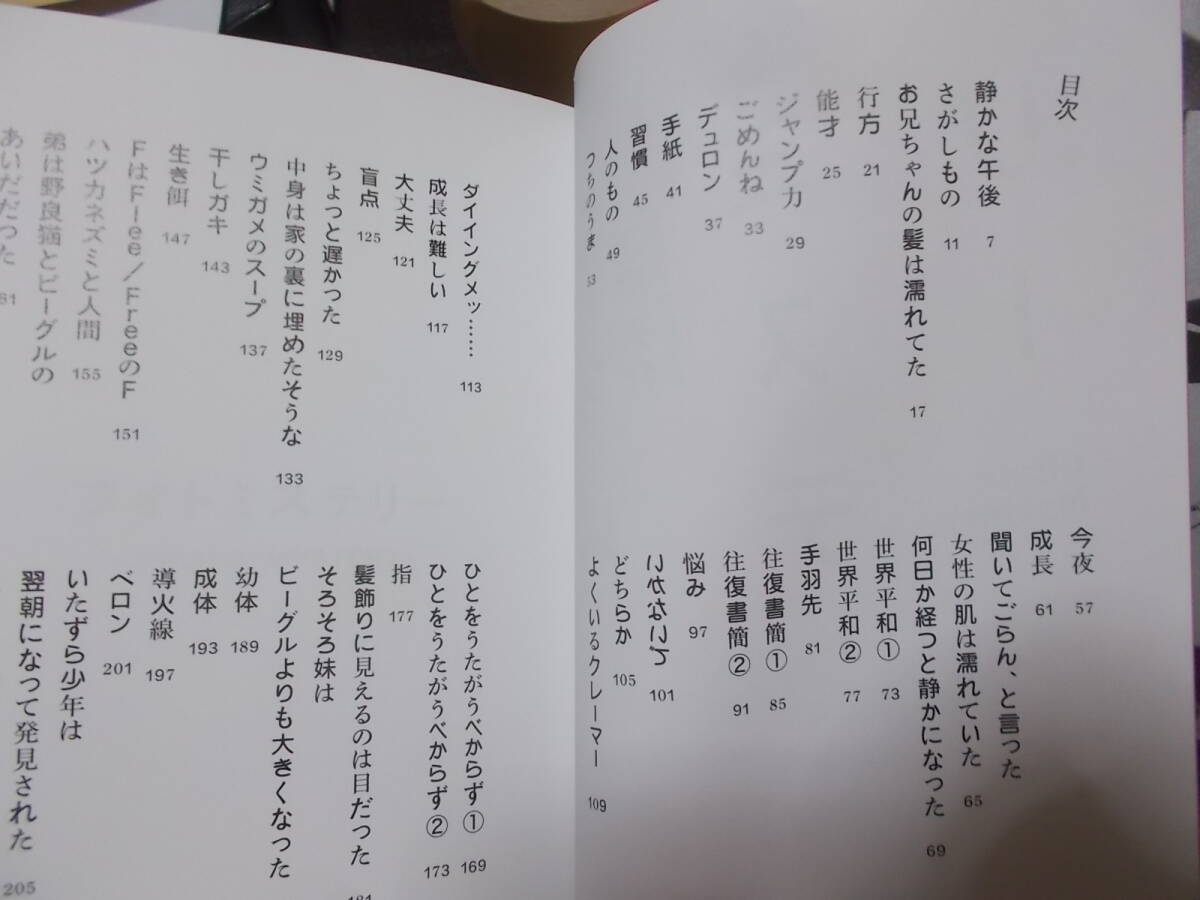 目次
静かな午後 7
さがしもの 11
お兄ちゃんの髪は濡れてた 17
行方 21
能才 25
ジャンプ力 29
ごめんね 33
デュロン 37
手紙 41
習慣 45
人のもの 49
つちのうま 53
今夜 57
成長 61
聞いてごらん、と言った
女性の肌は濡れていた 65
何日か経つと静かになった 69
世界平和① 73
世界平和② 77
手羽先 81
往復書簡① 85
往復書簡② 91
悩み 97
101
どちらか 105
よくいるクレーマー 109
ダイイングメッ…… 113
成長は難しい 117
大丈夫 121
盲点 125
ちょっと遅かった 129
中身は家の裏に埋めたそうな 133
ウミガメのスープ 137
干しガキ 143
生き餌 147
FはFlee/FreeのF 151
ハツカネズミと人間 155
弟は野良猫とビーグルの
あいだだった 161
ひとをうたがうべからず① 169
ひとをうたがうべからず② 173
指 177
髪飾りに見えるのは目だった 181
そろそろ妹は
ビーグルよりも大きくなった
幼体 189
成体 193
導火線 197
ベロン 201
いたずら少年は
翌朝になって発見された 205